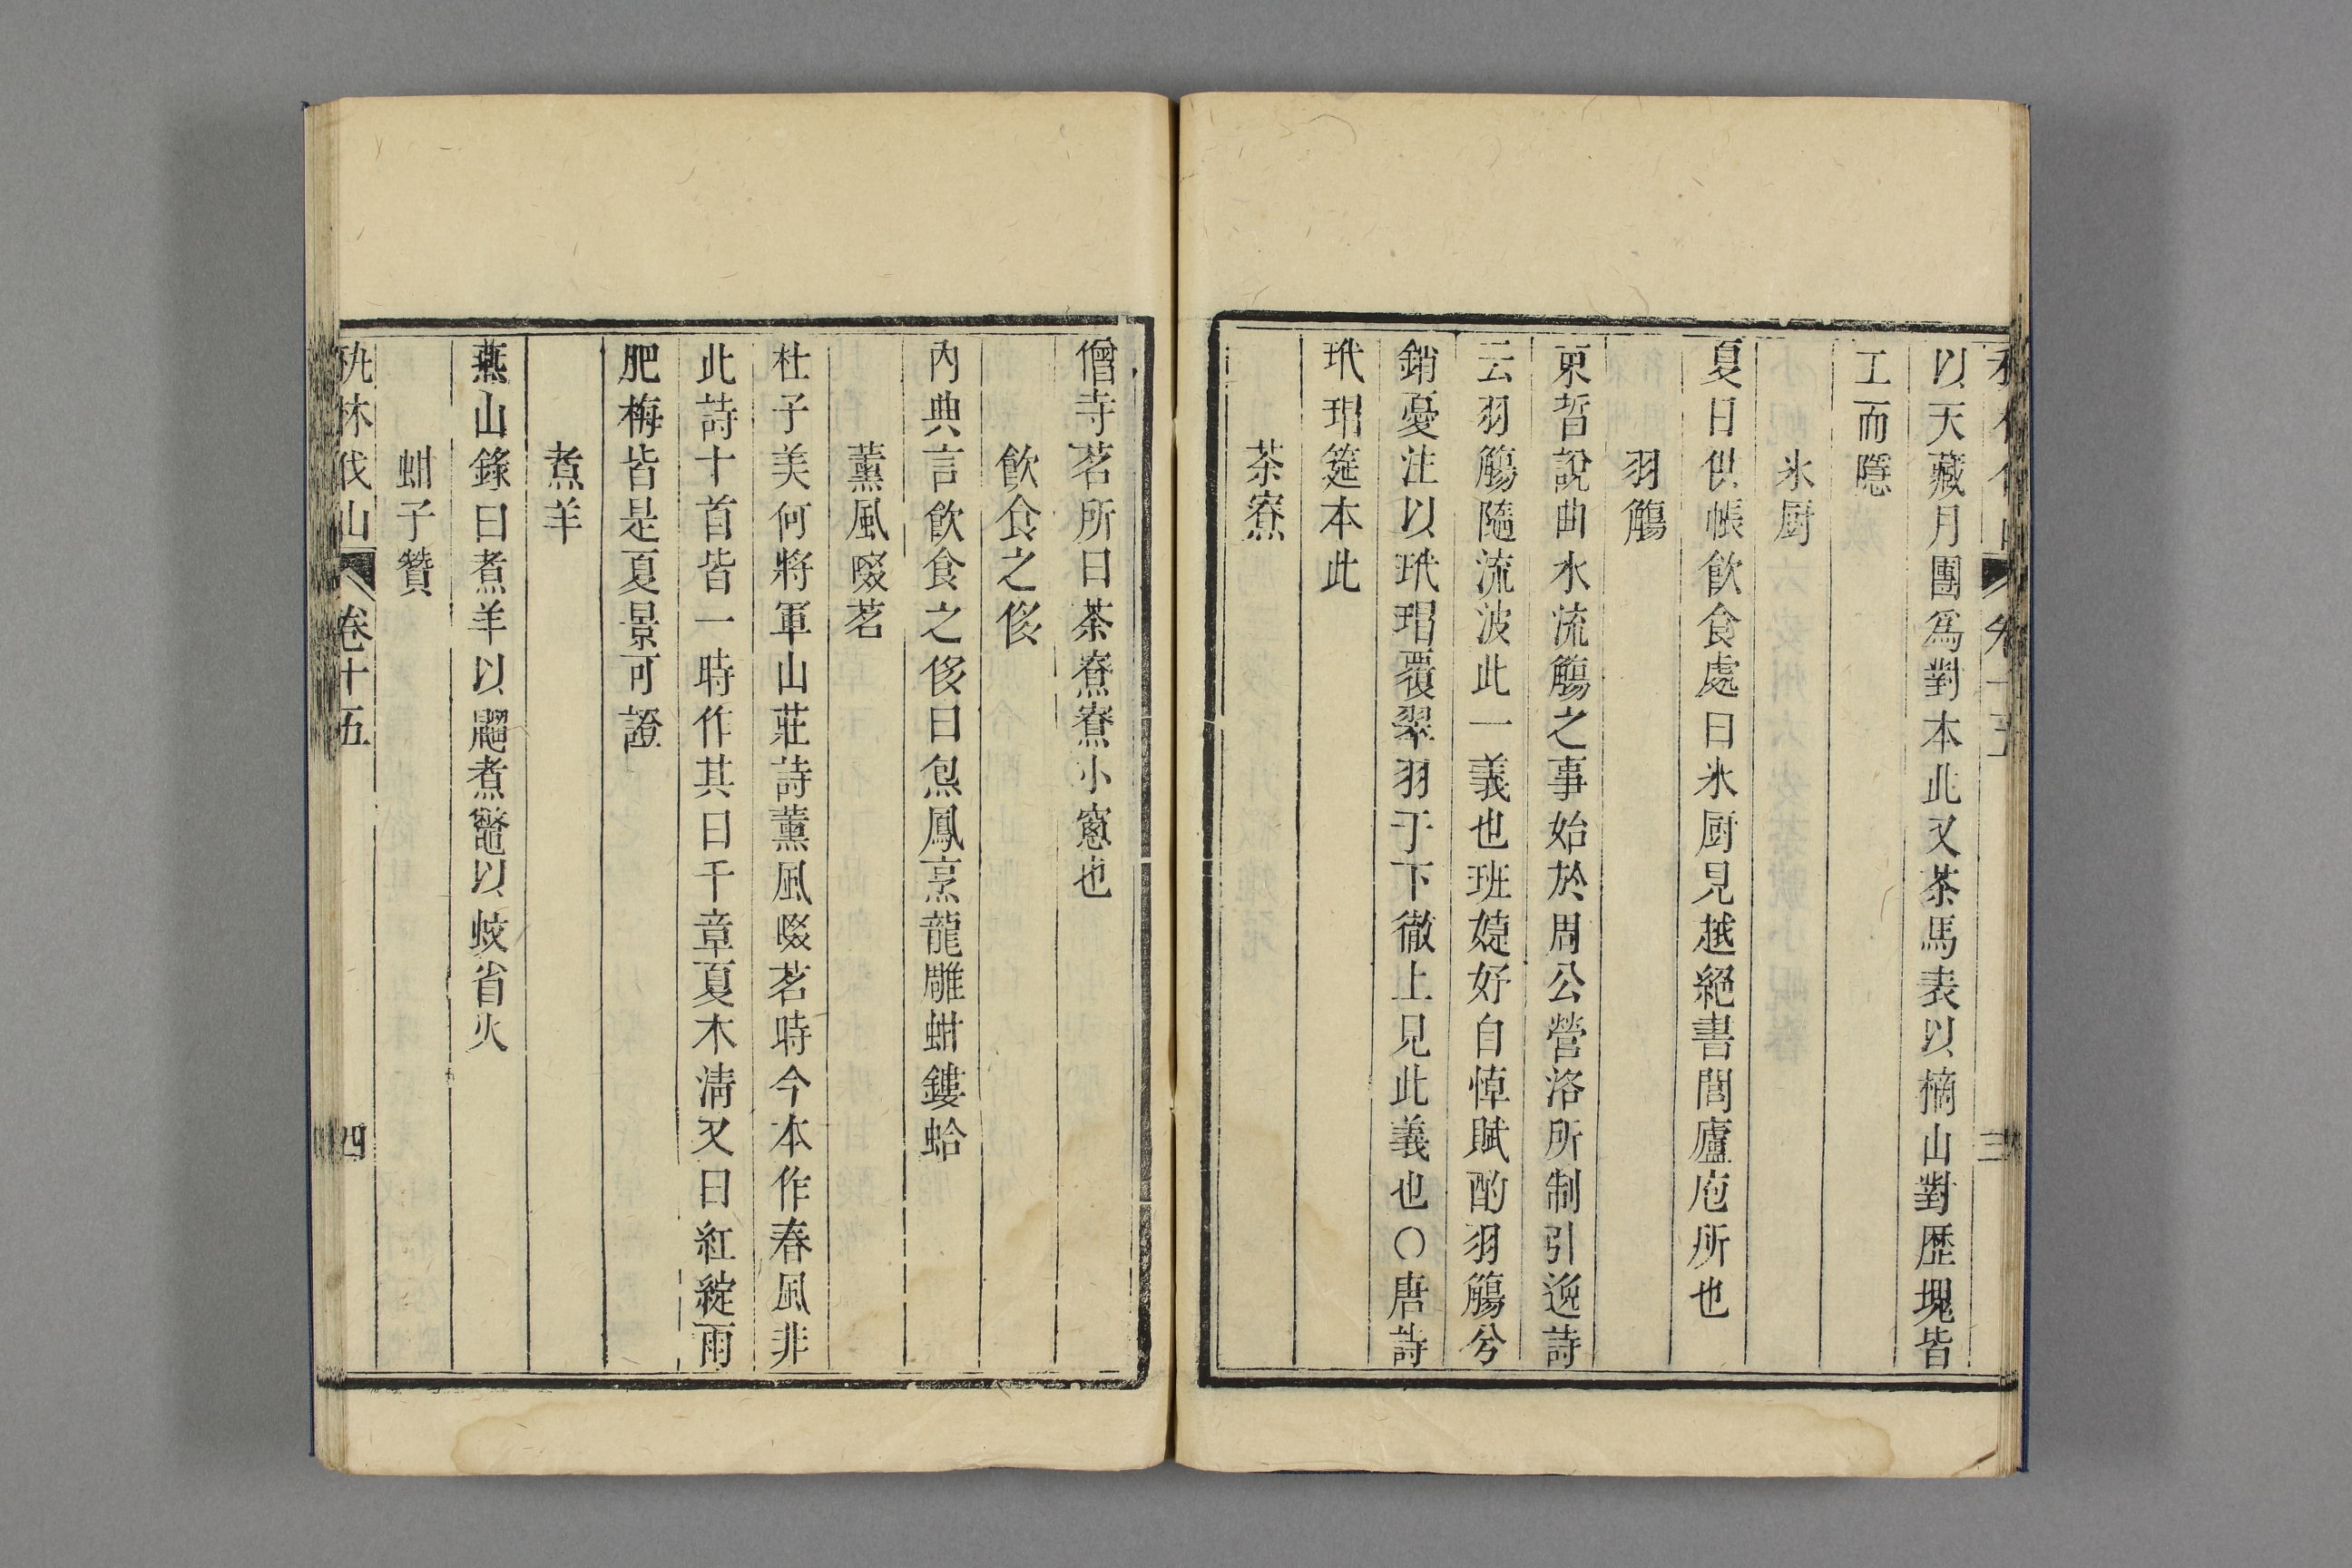 以天藏月團爲對本此又茶馬表以摘山對歷塊皆
工而隱
氷厨
夏日供帳飲食處曰氷厨見越絕書闔廬庖所也
羽觴
束晳說曲水流觴之事始於周公營洛所制引逸詩
云羽觴隨流波此一義也班婕妤自悼賦酌羽觴兮
銷憂注以玳瑁覆翠羽于下徹上見此義也〇唐詩
玳瑁筵本此
茶寮
僧寺茗所曰茶寮寮小窻也
飲食之侈
內典言飲食之侈曰炰鳳烹龍雕蚶鏤蛤
薰風啜茗
杜子美何將軍山莊詩薰風啜茗時今本作春風非
此詩十首皆一時作其曰千章夏木淸又曰紅綻雨
肥梅皆是夏景可證
煮羊
燕山錄曰煮羊以䶉煮鼈以蛟省火
蚶子贊
秇林伐山 卷十五 四